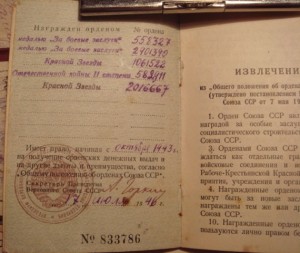 Награжден орденом № ордена
медалью "За боевые заслуги" 558327
медалью "За боевые заслуги"
Красной Звезды 1061522
Отечественной войны II степени
Красной Звезды 2016667
Имеет право, начиная с октября 1943 г.
на получение орденских денежных выдач и
на другие льготы и преимущества, согласно
„Общему положению об орденах Союза ССР".
Секретарь Президиума
Верховного Совета Союза ССР
7 июля 1946 г.
№ 833786
ИЗВЛЕЧЕНИ
из „Общего положения об орден
(утвержден постановлением
Союза ССР от 7 мая 1
1. Орден Союза ССР
наградой за особые заслуги
социалистического строительст
Союза ССР.
3. Орденами Союза ССР
ждаться как отдельные гра
войсковые соединения и во
Рабоче-Крестьянской Красно
приятия, учреждения и органи
4. Награжденные орденом
могут быть за новые заслуги
награждены тем же или др
Союза ССР.
10. Награжденные орден